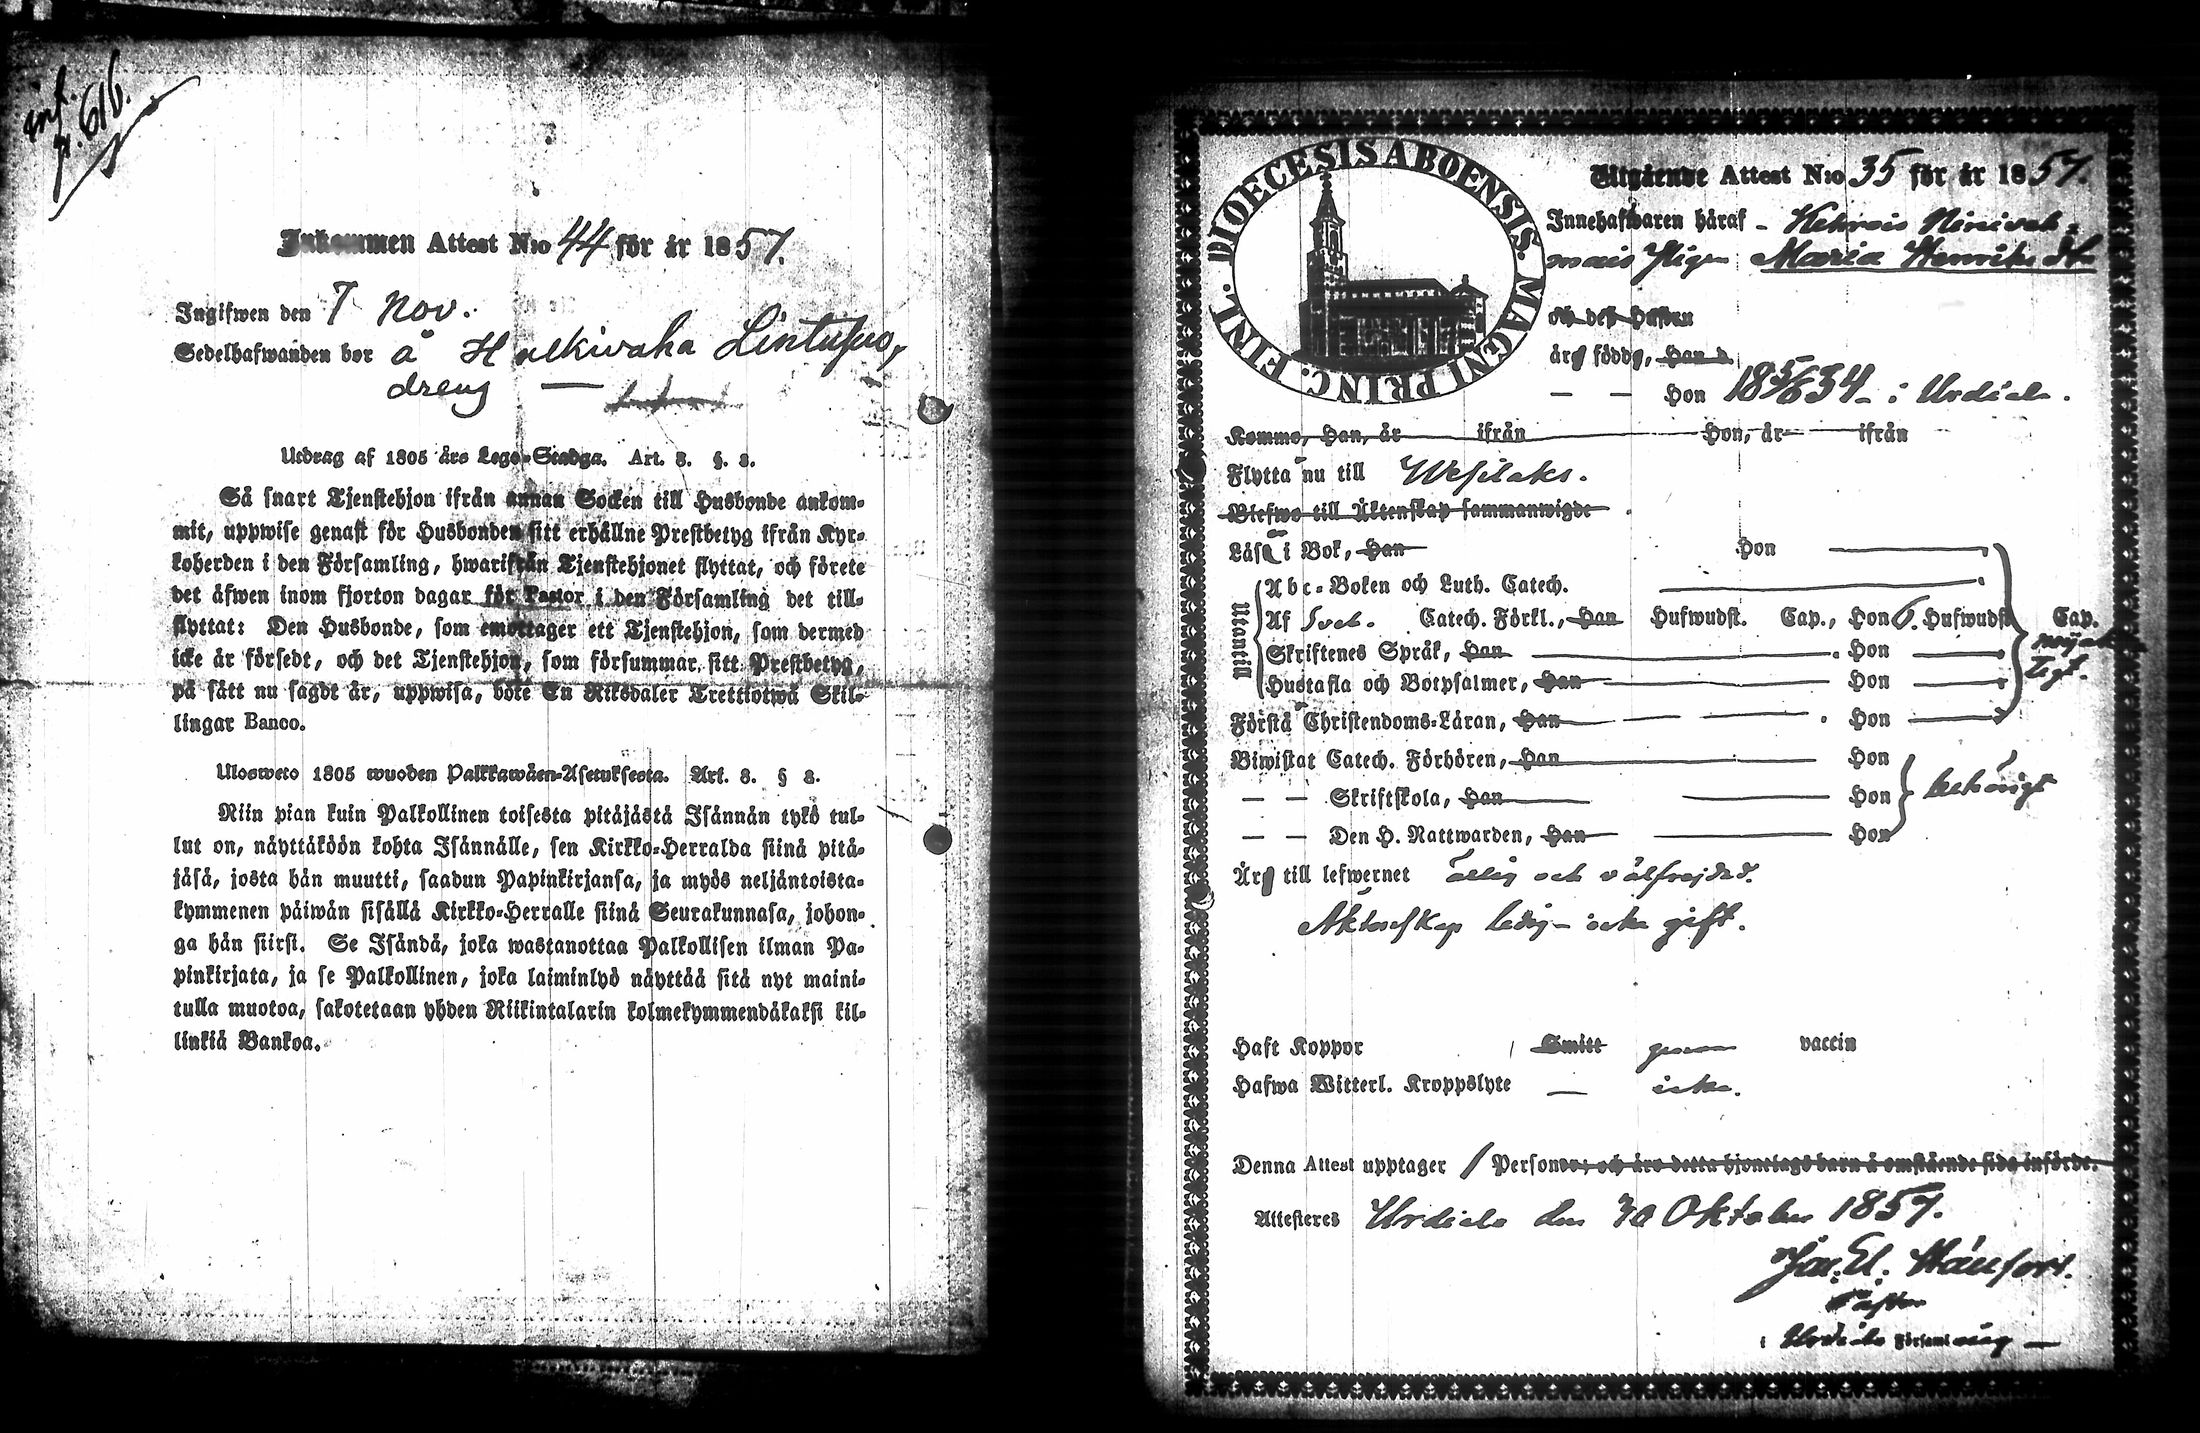 inf.
p. 616.
Inkommen Attest N:o 44 för år 1857.
Ingifwen den 7 Nov.
Sedelhafwanden bor å Hulkivaha Lintupuo,
dreng —
Utdrag af 1805 års Lego-Stadga. Art. 3. §. 3.
Så snart Tjenstehjon ifrån annan Socken till Husbonde ankom-
mit, uppwise genast för Husbonden sitt erhållne Prestbetyg ifrån Kyr-
koherden i den Församling, hwarifrån Tjenstehjonet flyttat, och förete
det äfwen inom fjorton dagar för Pastor i den Församling det till-
flyttat: Den Husbonde, som emottager ett Tjenstehjon, som dermed
icke är försedt, och det Tjenstehjon, som försummar sitt Prestbetyg,
på sätt nu sagdt är, uppwisa, böte En Riksdaler Trettiotwå Skil-
lingar Banco.
Ulosweto 1805 wuoden Palkkawäen-Asetuksesta. Art. 3. § 3.
Niin pian kuin Palkollinen toisesta pitäjästä Isännän tykö tul-
lut on, näyttäköön kohta Isännälle, sen Kirkko-Herralda siinä pitä-
jäsä, josta hän muutti, saadun Papinkirjansa, ja myös neljäntoista-
kymmenen päiwän sisällä Kirkko-Herralle siinä Seurakunnasa, johon-
ga hän siirsi. Se Isändä, joka wastanottaa Palkollisen ilman Pa-
pinkirjata, ja se Palkollinen, joka laiminlyö näyttää sitä nyt maini-
tulla muotoa, sakotetaan yhden Riikintalarin kolmekymmendäkaksi kil-
linkiä Bankoa.
DIOECESIS ABOENSIS. MAGNI PRINC. FINL.
Utgående Attest N:o 35 för år 1857.
Innehafwaren häraf - Kehrois
Pigan Maria Henriksdr
och deß Hustru
äro födde, Han d.
— — Hon 18 5/6 34 - i Urdiala.
Kommo, Han, år ifrån Hon, år ifrån
Flytta nu till Wesilaks.
Blefwo till Äktenskap sammanwigde
Läsa i Bok, Han Hon
Utantill
Abc-Boken och Luth. Catech.
Af Sveb. Catech. Förkl., Han Hufwudst. Cap., Hon 6. Hufwudst. Cap.
Skriftenes Språk, Han Hon
Hustafla och Botpsalmer, Han Hon
Förstå Christendoms-Läran, Han Hon
nöjak
tigt.
Biwistat Catech. Förhören, Han Hon
— — Skriftskola, Han Hon
— — Den H. Nattwarden, Han Hon
behörigt
Äro till lefwernet ärlig och välfrejdad.
Äktenskap ledig - icke gift.
Haft Koppor Smitt genom vaccin
Hafwa Witterl. Kroppslyte — icke.
Denna Attest upptager 1 Personer; och äro detta hjonelags barn å omstående sida införde.
Attesteres Urdiala den 30 Oktober 1857.
Pastor
i Urdiala Församling —